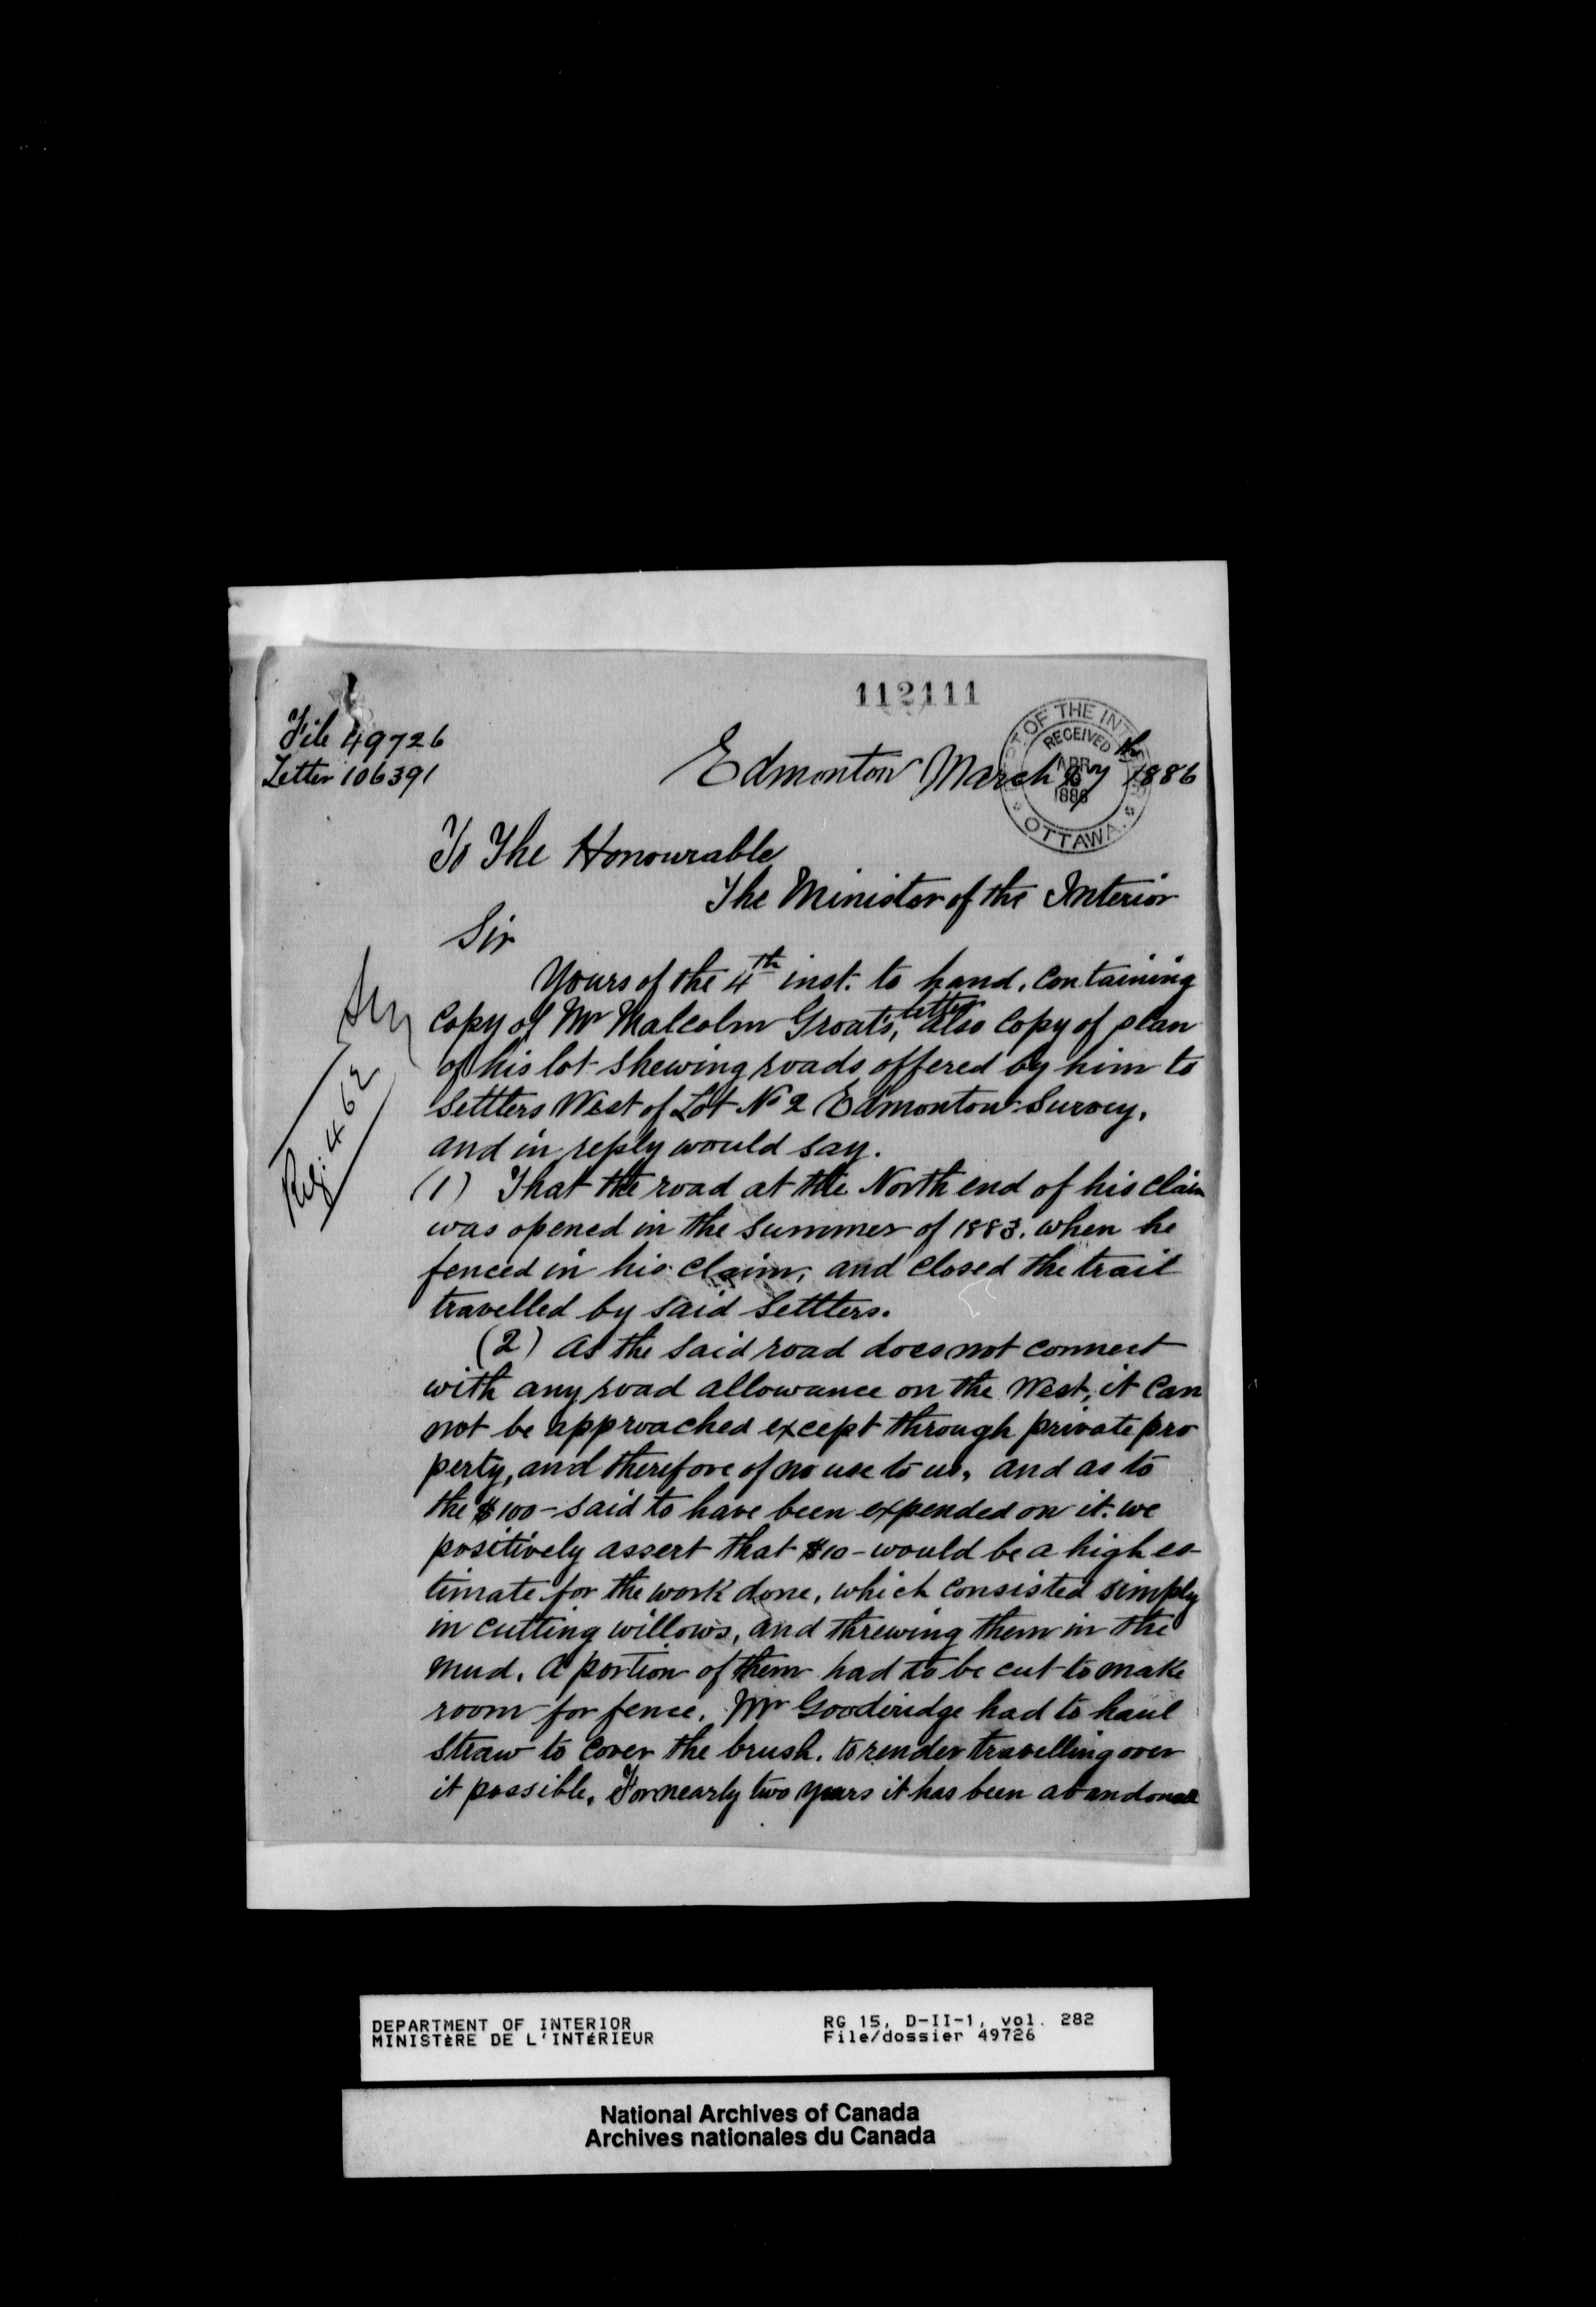 112111
File 49726
Letter 106391
DEPT OF THE INTERIOR
RECEIVED
APR
1886
OTTAWA.
Edmonton March 27th 1886
To The Honourable
The Minister of the Interior
Sir
Yours of the 4th inst. to hand, containing
Copy of Mr Malcolm Groat's, letter also Copy of plan
of his lot shewing roads offered by him to
Settlers West of Lot No 2 Edmonton Survey,
and in reply would say.
Ref: 462
(1) That the road at the North end of his claim
was opened in the Summer of 1883. when he
fenced in his claim, and closed the trail
travelled by said Settlers.
(2) As the said road does not connect
with any road allowance on the West, it Can
not be approached except through private pro
perty, and therefore of no use to us, and as to
the $100 - said to have been expended on it. we
positively assert that $10 - would be a high es-
timate for the work done, which consisted simply
in cutting willows, and threwing them in the
mud. A portion of them had to be cut to make
room for fence. Mr Gooderidge had to haul
Straw to Cover the brush. to render travelling over
it possible. For nearly two years it has been abandoned
DEPARTMENT OF INTERIOR
MINISTÈRE DE L'INTÉRIEUR
RG 15, D-II-1, vol. 282
File/dossier 49726
National Archives of Canada
Archives nationales du Canada